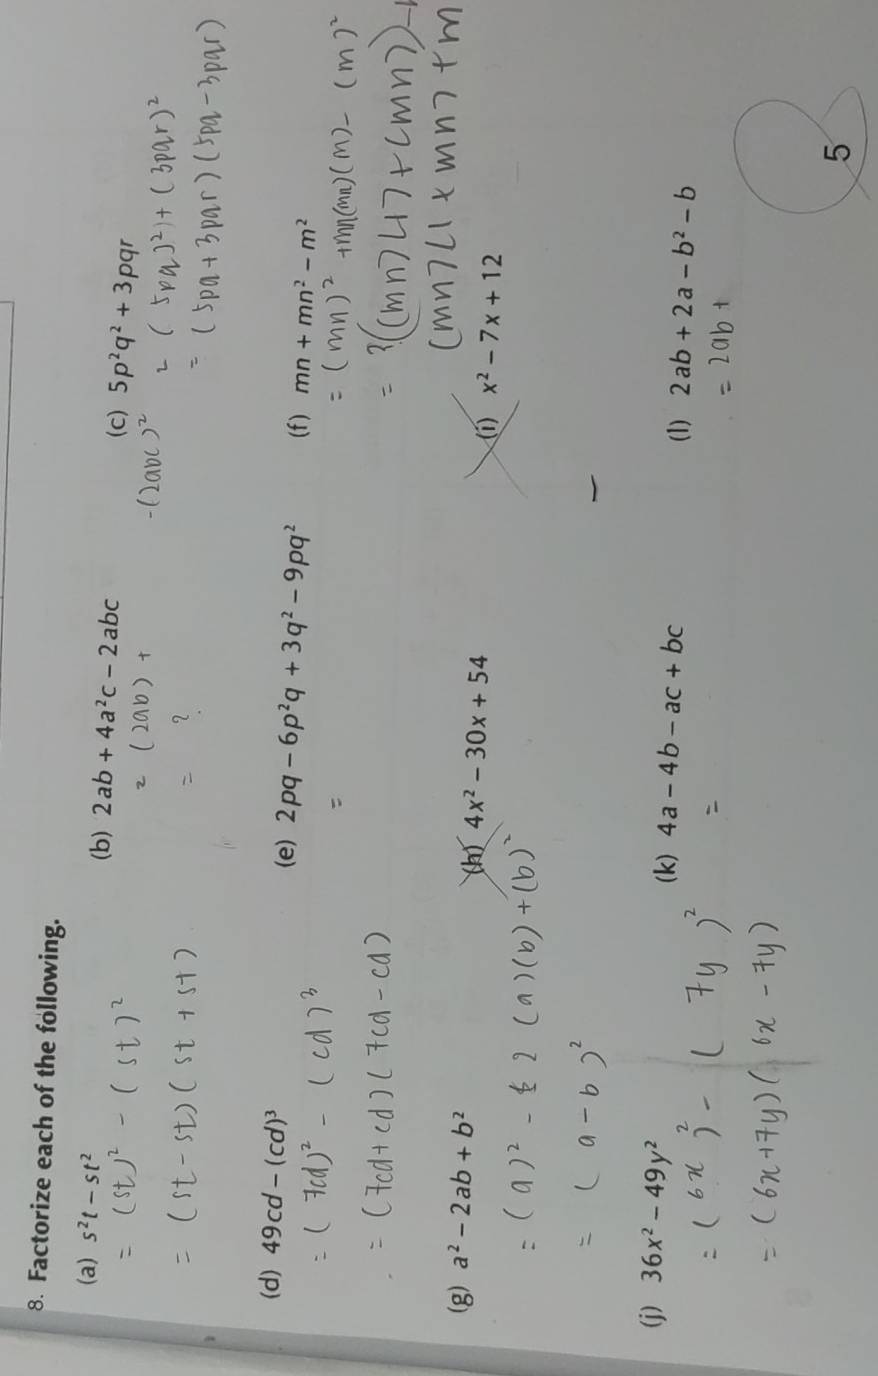 8. Factorize each of the following.
(a) s²t − st²
= (st)² − (st)²
= (st − st)(st + st)
(b) 2ab + 4a²c − 2abc
= (2ab) + −(2abc)²
= ?
(c) 5p²q² + 3pqr
= (5pq)²) + (3pqr)²
= (5pq + 3pqr)(5pq − 3pqr)
(d) 49cd − (cd)³
= (7cd)² − (cd)³
= (7cd + cd)(7cd − cd)
(e) 2pq − 6p²q + 3q² − 9pq²
=
(f) mn + mn² − m²
= (mn)² + mn(mn)(m) − (m)²
(g) a² − 2ab + b²
= (a)² − 2 (a)(b) + (b)²
= (a − b)²
(h) 4x² − 30x + 54
(i) x² − 7x + 12
(j) 36x² − 49y²
= (6x)² − (7y)²
= (6x + 7y)(6x − 7y)
(k) 4a − 4b − ac + bc
=
(l) 2ab + 2a − b² − b
= 2ab +
5